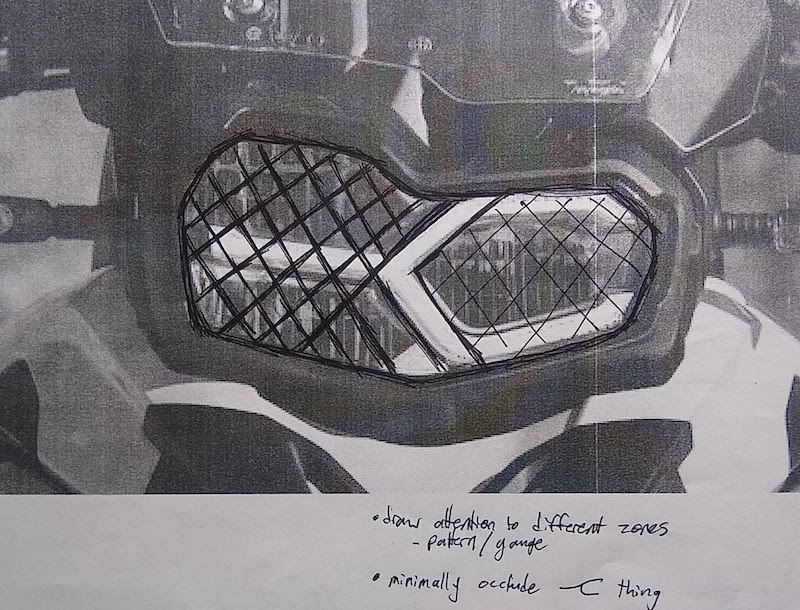 • draw attention to different zones
- pattern/gauge
• minimally occlude –C thing